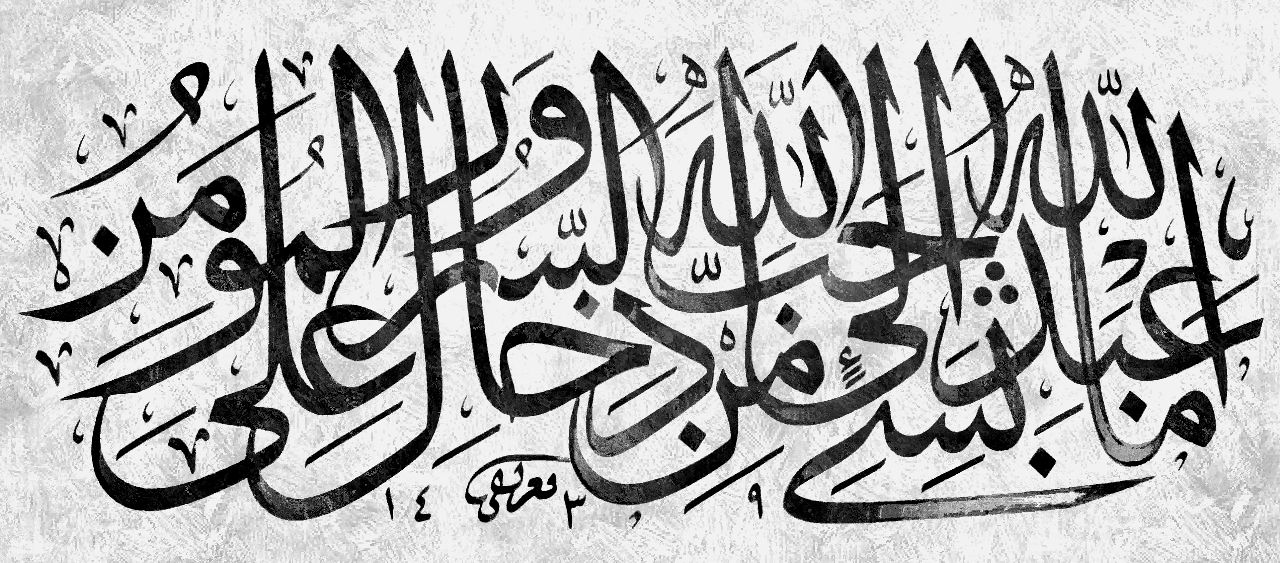 ما عُبِدَ اللّٰهُ بِشَيْءٍ أَحَبَّ إِلَى اللّٰهِ مِنْ إِدْخَالِ السُّرُورِ عَلَى الْمُؤْمِنِ
١٤٣٩